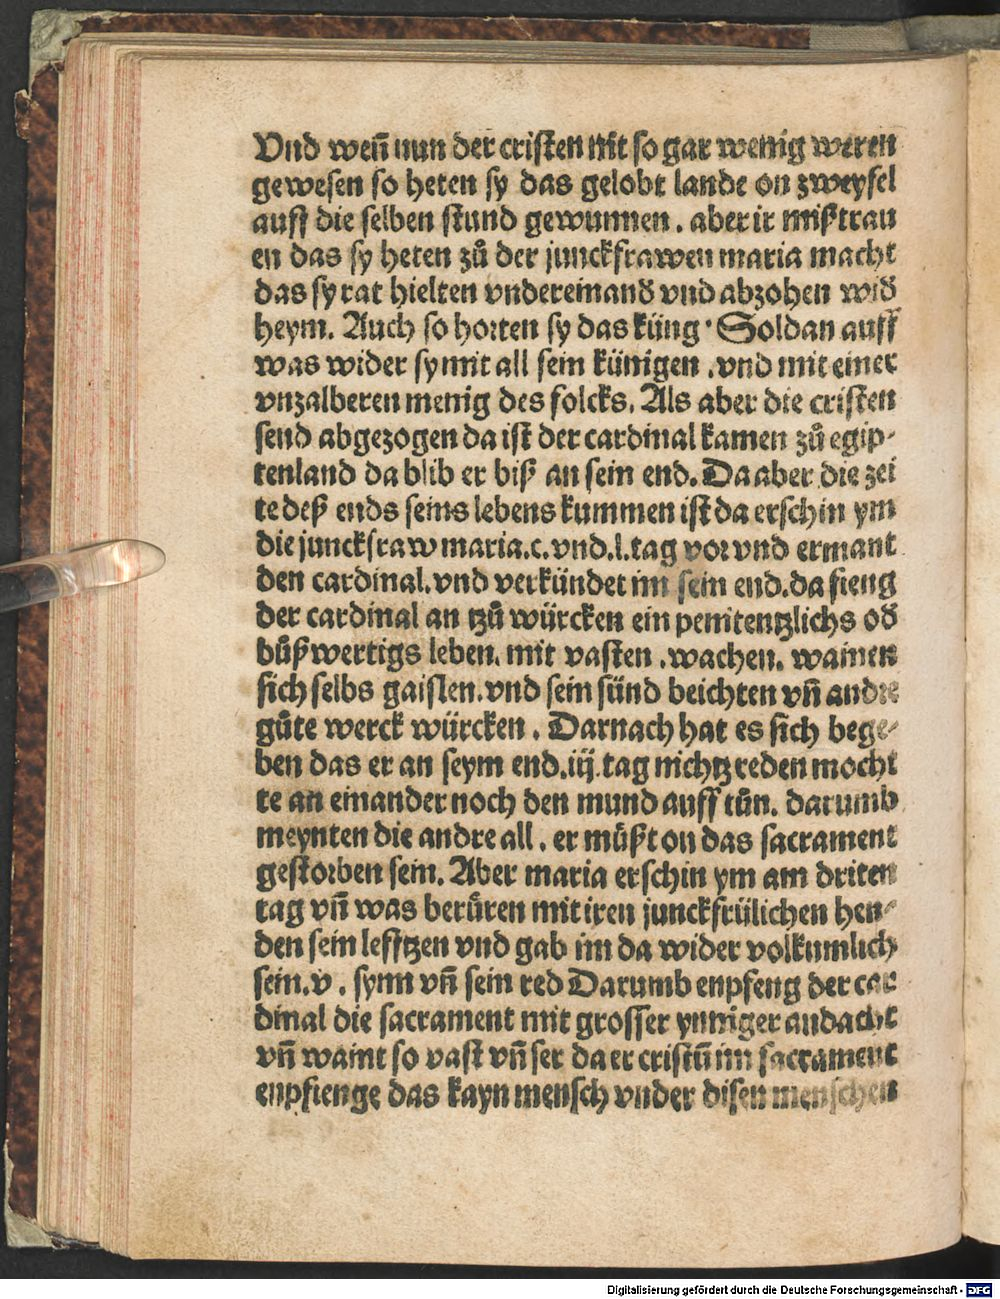 Vnd weñ nun der cristen nit so gar wenig weren
gewesen so heten sy das gelobt lande on zweyfel
auff die selben stund gewunnen . aber ir mißtrau
en das sy heten zů der junckfrawen maria macht
das sy rat hielten vndereinand vnd abzohen wid
heym. Auch so horten sy das küng · Soldan auff
was wider sy mit all sein künigen .vnd mit einer
vnzalberen menig des folcks. Als aber die cristen
send abgezogen da ist der cardinal kamen zů egip-
tenland da blib er biß an sein end. Da aber die zei
te deß ends seins lebens kummen ist da erschin ym
die junckfraw maria.c.vnd.l.tag vor vnd ermant
den cardinal.vnd verkündet im sein end.da fieng
der cardinal an tzů würcken ein penitentzlichs od
bůßwertigs leben. mit vasten .wachen. wainen
sich selbs gaislen.vnd sein sünd beichten vñ andre
gůte werck würcken . Darnach hat es sich bege-
ben das er an seym end.iij.tag nichtz reden mocht
te an einander noch den mund auff tůn. darumb
meynten die andre all . er můßt on das sacrament
gestorben sein. Aber maria erschin ym am driten
tag vñ was berůren mit iren junckfrülichen hen-
den sein lefftzen vnd gab im da wider volkumlich
sein.v . synn vñ sein red Darumb enpfeng der car
dinal die sacrament mit grosser ynniger andacht
vñ waint so vast vñ ser da er cristũ im sacrament
enpfienge das kayn mensch vnder disen menschen
Digitalisierung gefördert durch die Deutsche Forschungsgemeinschaft - DFG